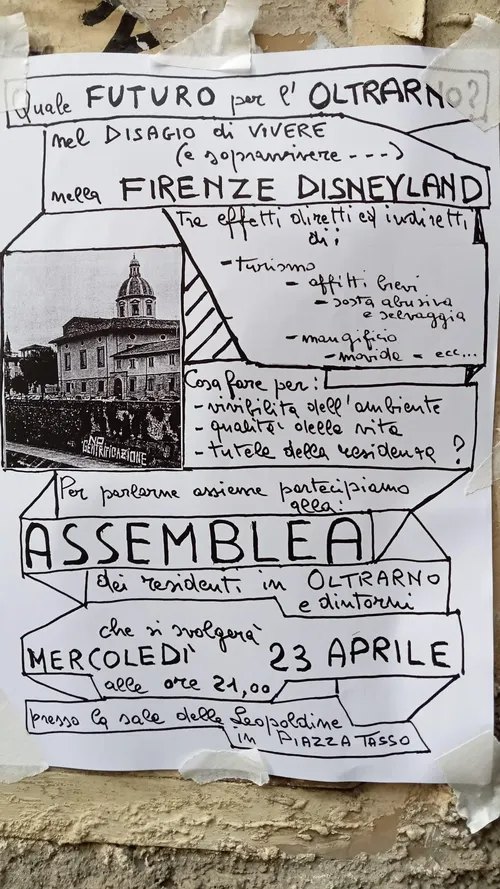 Quale FUTURO per l' OLTRARNO?
nel DISAGIO di VIVERE
(e sopravvivere ---)
nella FIRENZE DISNEYLAND
Tra effetti diretti ed indiretti
di:
- turismo
- affitti brevi
- sosta abusiva
e selvaggia
- mangificio
- movida - ecc...
NO
GENTRIFICAZIONE
Cosa fare per:
- vivibilità dell'ambiente
- qualità della vita
- tutela della residenza ?
Per parlarne assieme partecipiamo
alla:
ASSEMBLEA
dei residenti in OLTRARNO
e dintorni
che si svolgerà
MERCOLEDÌ 23 APRILE
alle ore 21,00
presso la sala delle Leopoldine
in PIAZZA TASSO